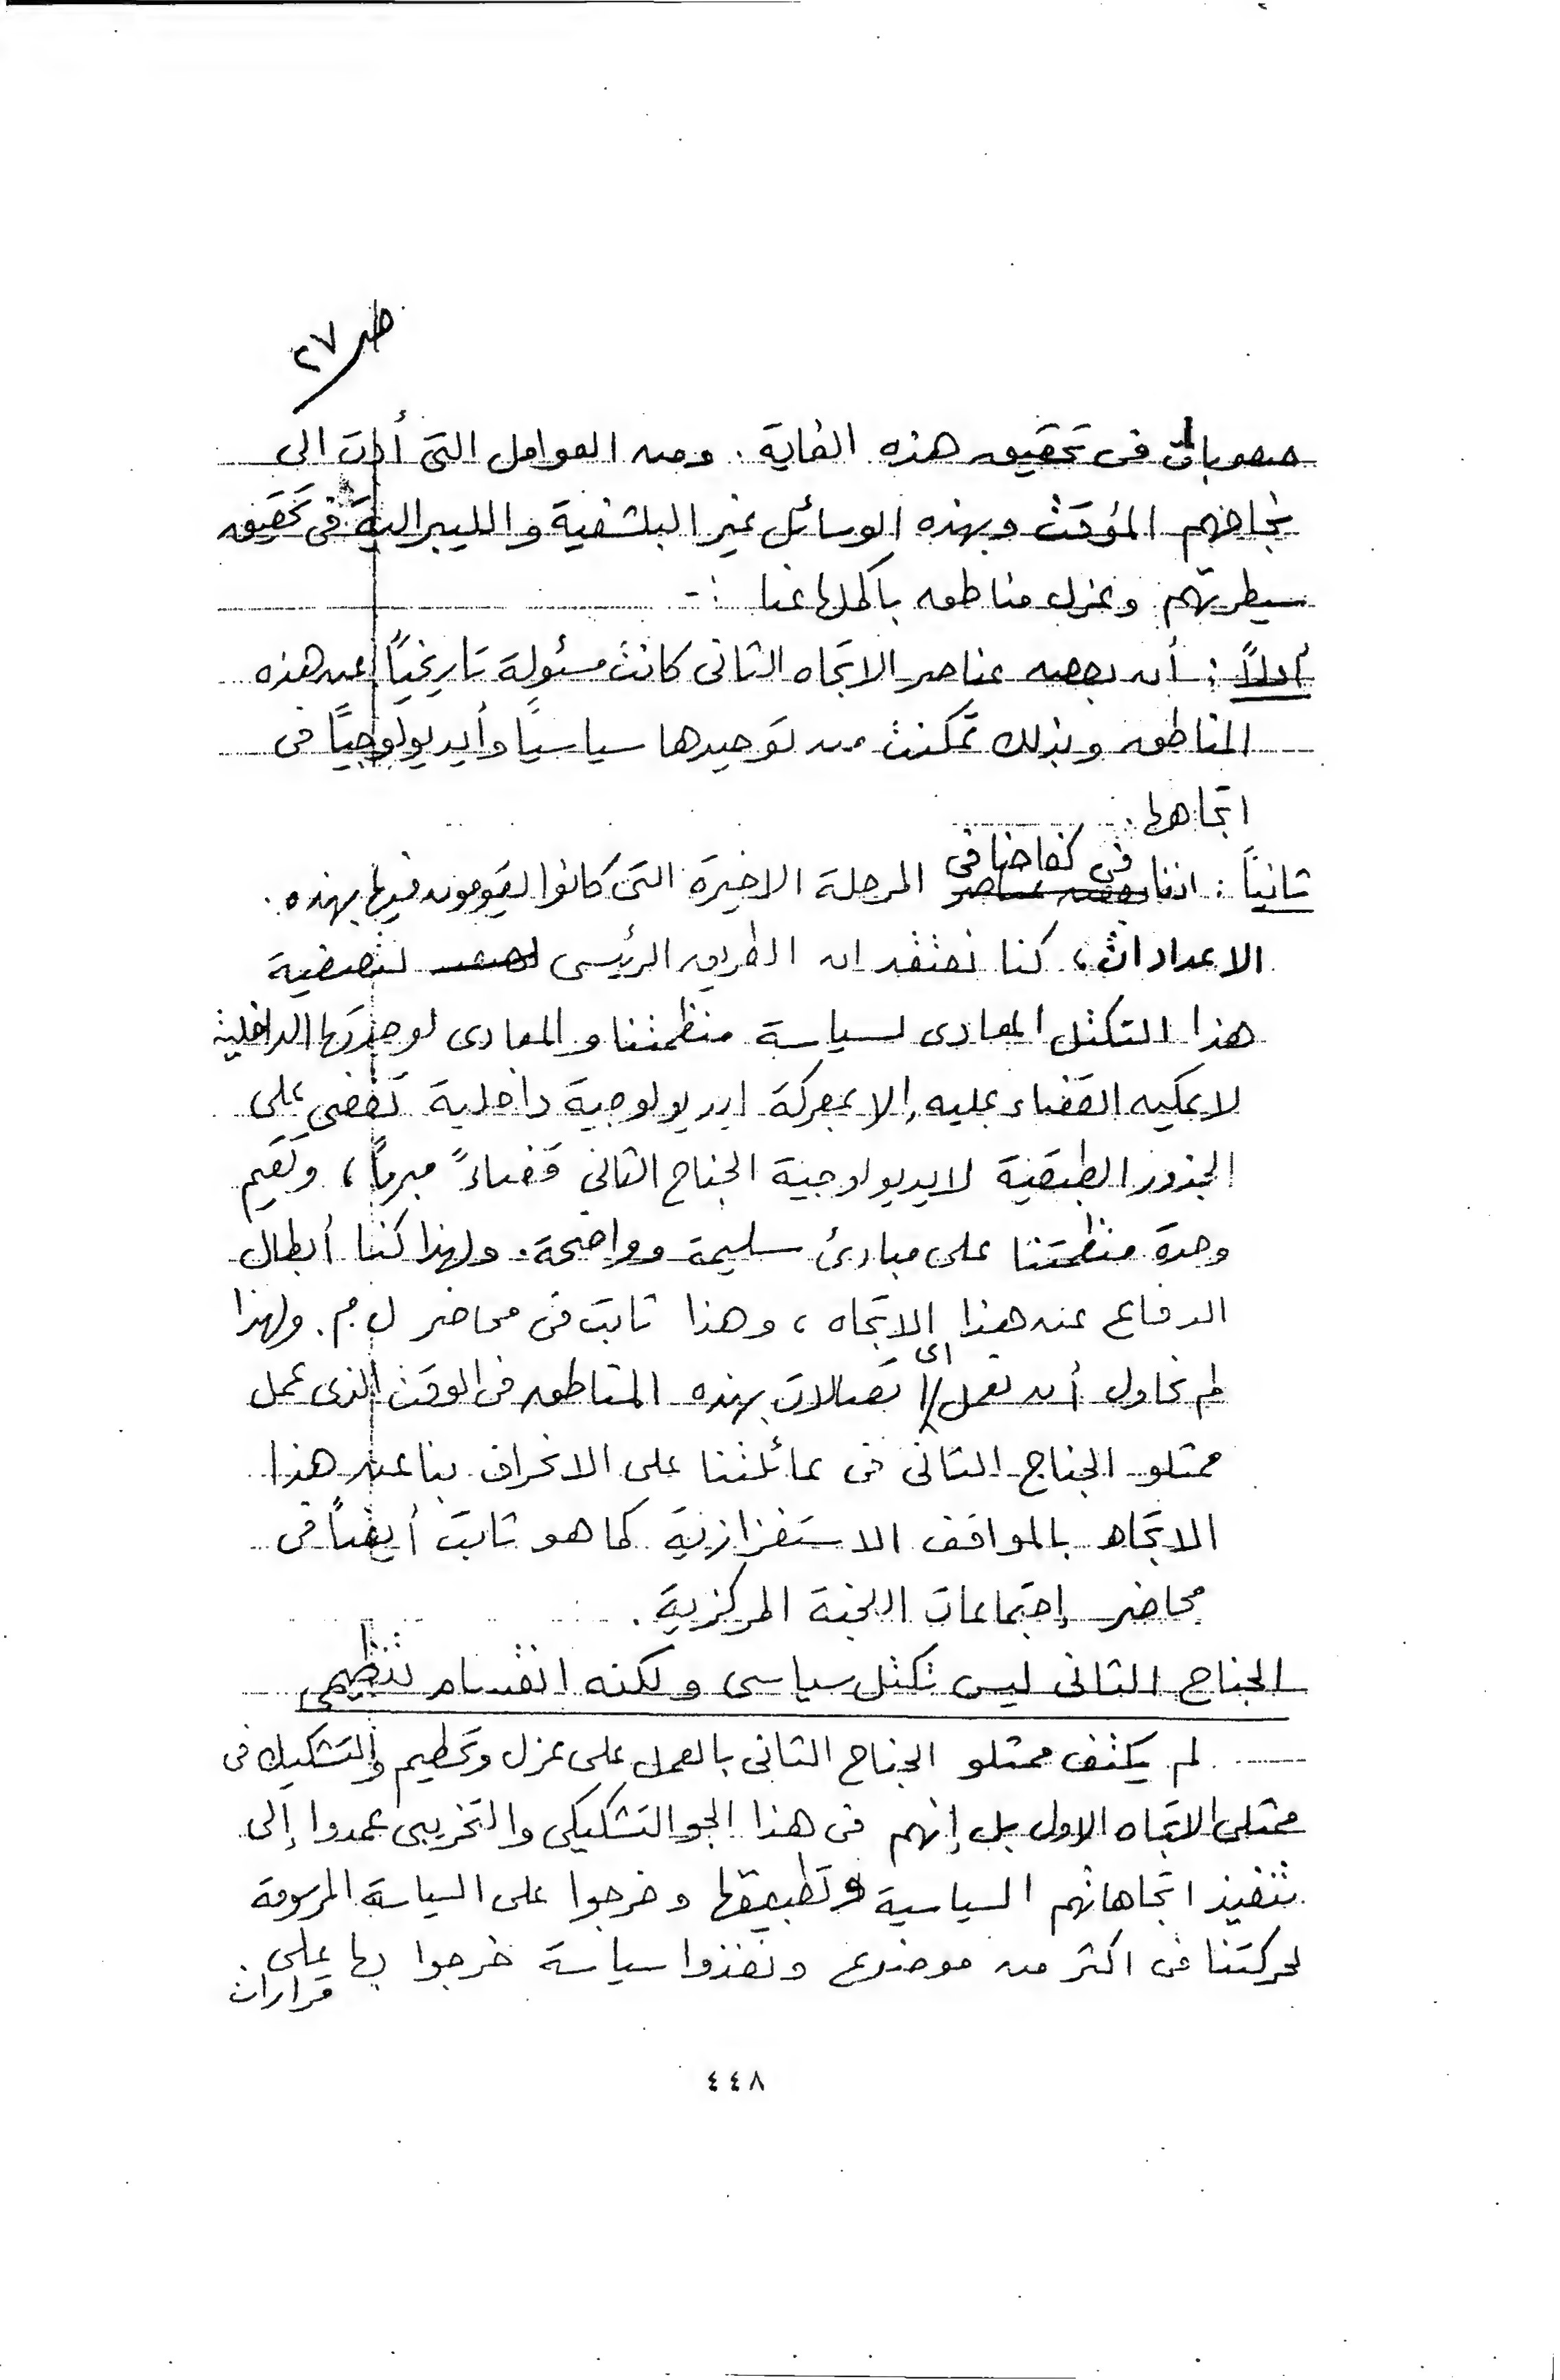 ص ٢٧
صعوبات فى تحقيق هذه الغاية. ومن العوامل التى أدت الى
نجاحهم المؤقت وبهذه الوسائل غير البلشفية والليبرالية فى تحقيق
سيطرتهم وعزل مناطق باكملها عنا :-
أولاً : أن بعض عناصر الاتجاه الثانى كانت مسئولة تاريخياً عن هذه
المناطق وبذلك تمكنت من توحيدها سياسياً وأيديولوجياً فى
اتجاهها.
ثانياً : اننا فى كفاحنا فى المرحلة الاخيرة التى كانوا يقومون فيها بهذه
الاعدادات، كنا نعتقد ان الطريق الرئيسى لتصفية
هذا التكتل المعادى لسياسة منظمتنا والمعادى لوحدتها الداخلية
لا يمكن القضاء عليه إلا بمعركة ايديولوجية داخلية تقضى على
الجذور الطبقية لايديولوجية الجناح الثانى قضاءً مبرماً، وتقيم
وحدة منظمتنا على مبادئ سليمة وواضحة. ولهذا كنا أبطال
الدفاع عن هذا الاتجاه، وهذا ثابت فى محاضر ل.م. ولهذا
لم نحاول أن نعمل اى اتصالات بهذه المناطق فى الوقت الذى عمل
ممثلو الجناح الثانى فى عائلتنا على الانحراف بنا عن هذا
الاتجاه بالمواقف الاستفزازية كما هو ثابت أيضاً فى
محاضر إجتماعات اللجنة المركزية.
الجناح الثانى ليس تكتل سياسى ولكنه انقسام تنظيمى
لم يكتف ممثلو الجناح الثانى بالعمل على عزل وتحطيم والتشكيك فى
ممثلى الاتجاه الاول بل إنهم فى هذا الجو التشكيكى والتخريبى عمدوا إلى
تنفيذ اتجاهاتهم السياسية وتطبيقها وخرجوا على السياسة المرسومة
لحركتنا فى اكثر من موضوع ونفذوا سياسة خرجوا بها على
قرارات
٤٤٨